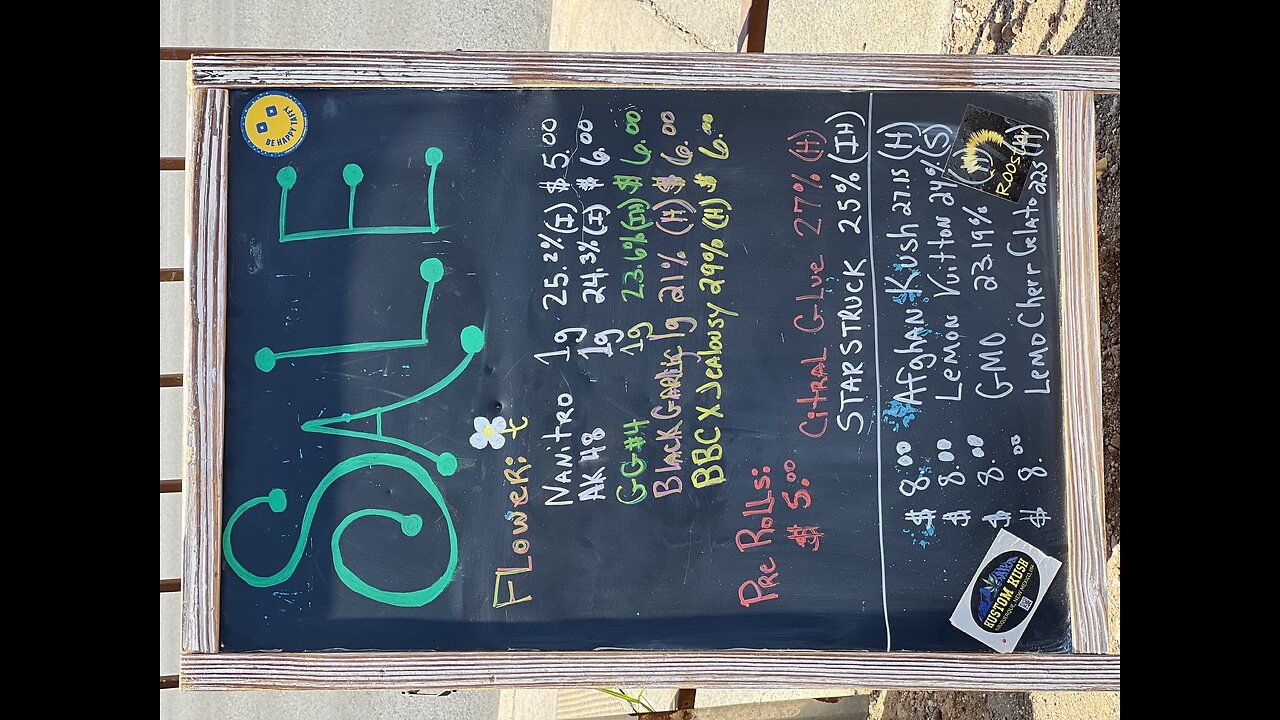 BE HAPPY TAFFY
SALE
FLOWER:
NANITRO 1g 25.2% (I) $ 5.00
AK 48 1g 24.3% (I) $ 6.00
GG#4 1g 23.6% (IH) $ 6.00
BLACK GARLIC 1g 21% (H) $ 6.00
BBC X Jealousy 29% (H) $ 6.00
PRE ROLLS:
$ 5.00
CITRAL GLUE 27% (H)
STARSTRUCK 25% (IH)
$ 8.00 Afghan Kush 27.15 (H)
$ 8.00 Lemon Vuitton 24% (S)
$ 8.00 GMO 23.19% (I)
$ 8.00 Lemo Cher Gelato 22.5 (H)
KUSTOM KUSH
ROOS